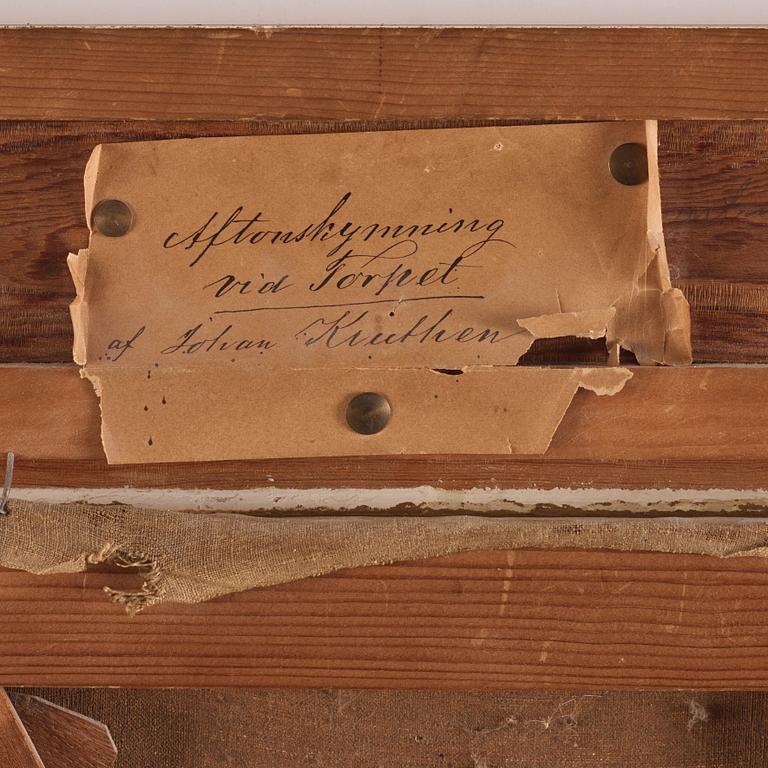 Aftonskymning
vid Torpet
af Johan Kruthen